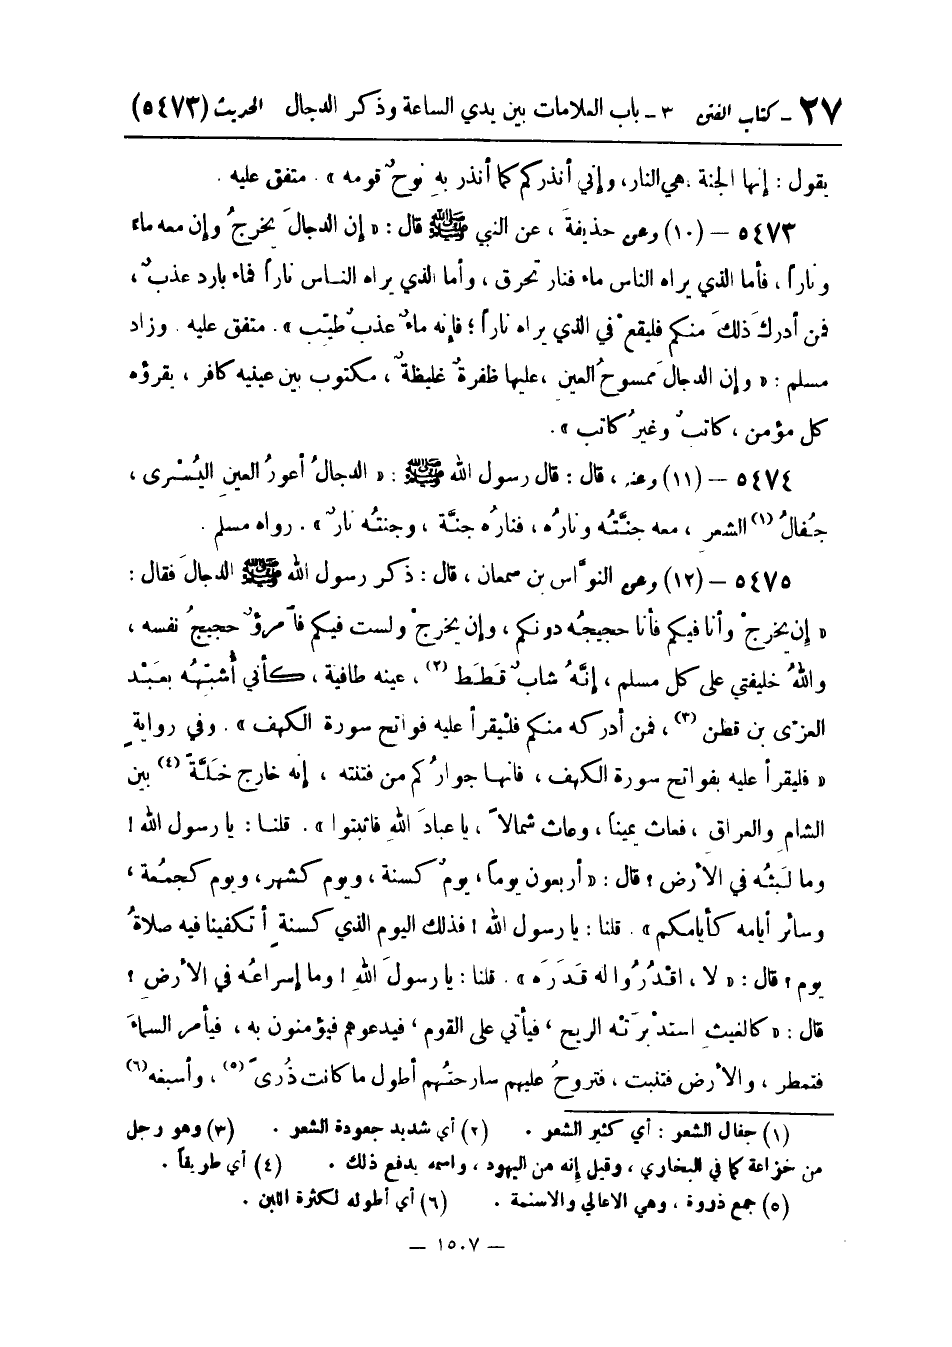 ٢٧ ـ كتاب الفتن ٣ ـ باب العلامات بين يدي الساعة وذكر الدجال الحديث (٥٤٧٣)
يقول : إنها الجنة .هي النار، وإني أنذركم كما أنذر به نوحٌ قومه » . متفق عليه .
٥٤٧٣ – (١٠) وعن حذيفةَ ، عن النبي ﷺ قال : « إن الدجالَ يخرجُ وإن معه ماءً
وناراً ، فأما الذي يراه الناس ماء فنار تحرق ، وأما الذي يراه النـاس ناراً فماء بارد عذبٌ ،
فمن أدركَ ذلكَ منكم فليقعْ في الذي يراه ناراً ؛ فإنه ماءٌ عذبٌ طيّب » . متفق عليه . وزاد
مسلم : « وإن الدجالَ ممسوحُ العينِ ،عليها ظفرةٌ غليظةٌ ، مكتوب بين عينيه كافر ، يقرؤه
كل مؤمن ، كاتبٌ وغيرُ كاتب » .
٥٤٧٤ – (١١) وعنه ، قال : قال رسول الله ﷺ : « الدجالُ أعورُ العينِ اليُسْرى ،
جُفالُ (١) الشعرِ ، معه جنَّتُه ونارُه ، فنارُه جنَّة ، وجنتُه نارٌ » . رواه مسلم .
٥٤٧٥ – (١٢) وعن النوَّاس بن سمعان ، قال : ذكر رسول الله ﷺ الدجالَ فقال :
« إِن يخرجْ وأنا فيكم فأنا حجيجُه دونكم ، وإن يخرجْ ولست فيكم فامرؤٌ حجيجُ نفسه ،
واللهُ خليفتي على كل مسلم ، إنَّهُ شابٌ قَطَط (٢) ، عينه طافية ، كأني أُشبّهُه بعَبْد
العزّى بن قطن (٣) ، فمن أدركه منكم فلْيقرأ عليه فواتح سورة الكهف » . وفي روايةٍ
« فليقرأ عليه بفواتح سورة الكهف ، فانها جوارُكم من فتنته ، إنه خارج خَلَّةً (٤) بين
الشامِ والعراقِ ، فعاث يميناً ، وعاث شمالاً ، يا عبادَ اللهِ فاثبتوا » . قلنـا : يا رسول الله !
وما لَبثُه في الأرض ؟ قال : « أربعون يوماً ، يومٌ كسنة ، ويوم كشهر، ويوم كجمُعة ،
وسائر أيامه كأيامكم » . قلنا : يا رسول الله ! فذلك اليوم الذي كسنةٍ أتكفينا فيه صلاةُ
يوم ؟ قال : « لا ، اقْدُرُوا له قَدَرَه » . قلنا : يا رسولَ اللهِ ! وما إسراعُه في الأرضِ ؟
قال : « كالغيثِ استدْبرَتْه الريح ، فيأتي على القوم ، فيدعوهم فيؤمنون به ، فيأمر السماءَ
فتمطر ، والأرض فتنبت ، فتروحُ عليهم سارحتُهم أطول ما كانت ذُرىً (٥) ، وأسبغه (٦)
(١) جفال الشعر : أي كثير الشعر . (٢) أي شديد جعودة الشعر . (٣) وهو رجل
من خزاعة كما في البخاري ، وقيل إنه من اليهود ، واسمه يدفع ذلك . (٤) أي طريقاً .
(٥) جمع ذروة ، وهي الاعالي والاسنمة . (٦) أي أطوله لكثرة اللبن .
– ١٥٠٧ –